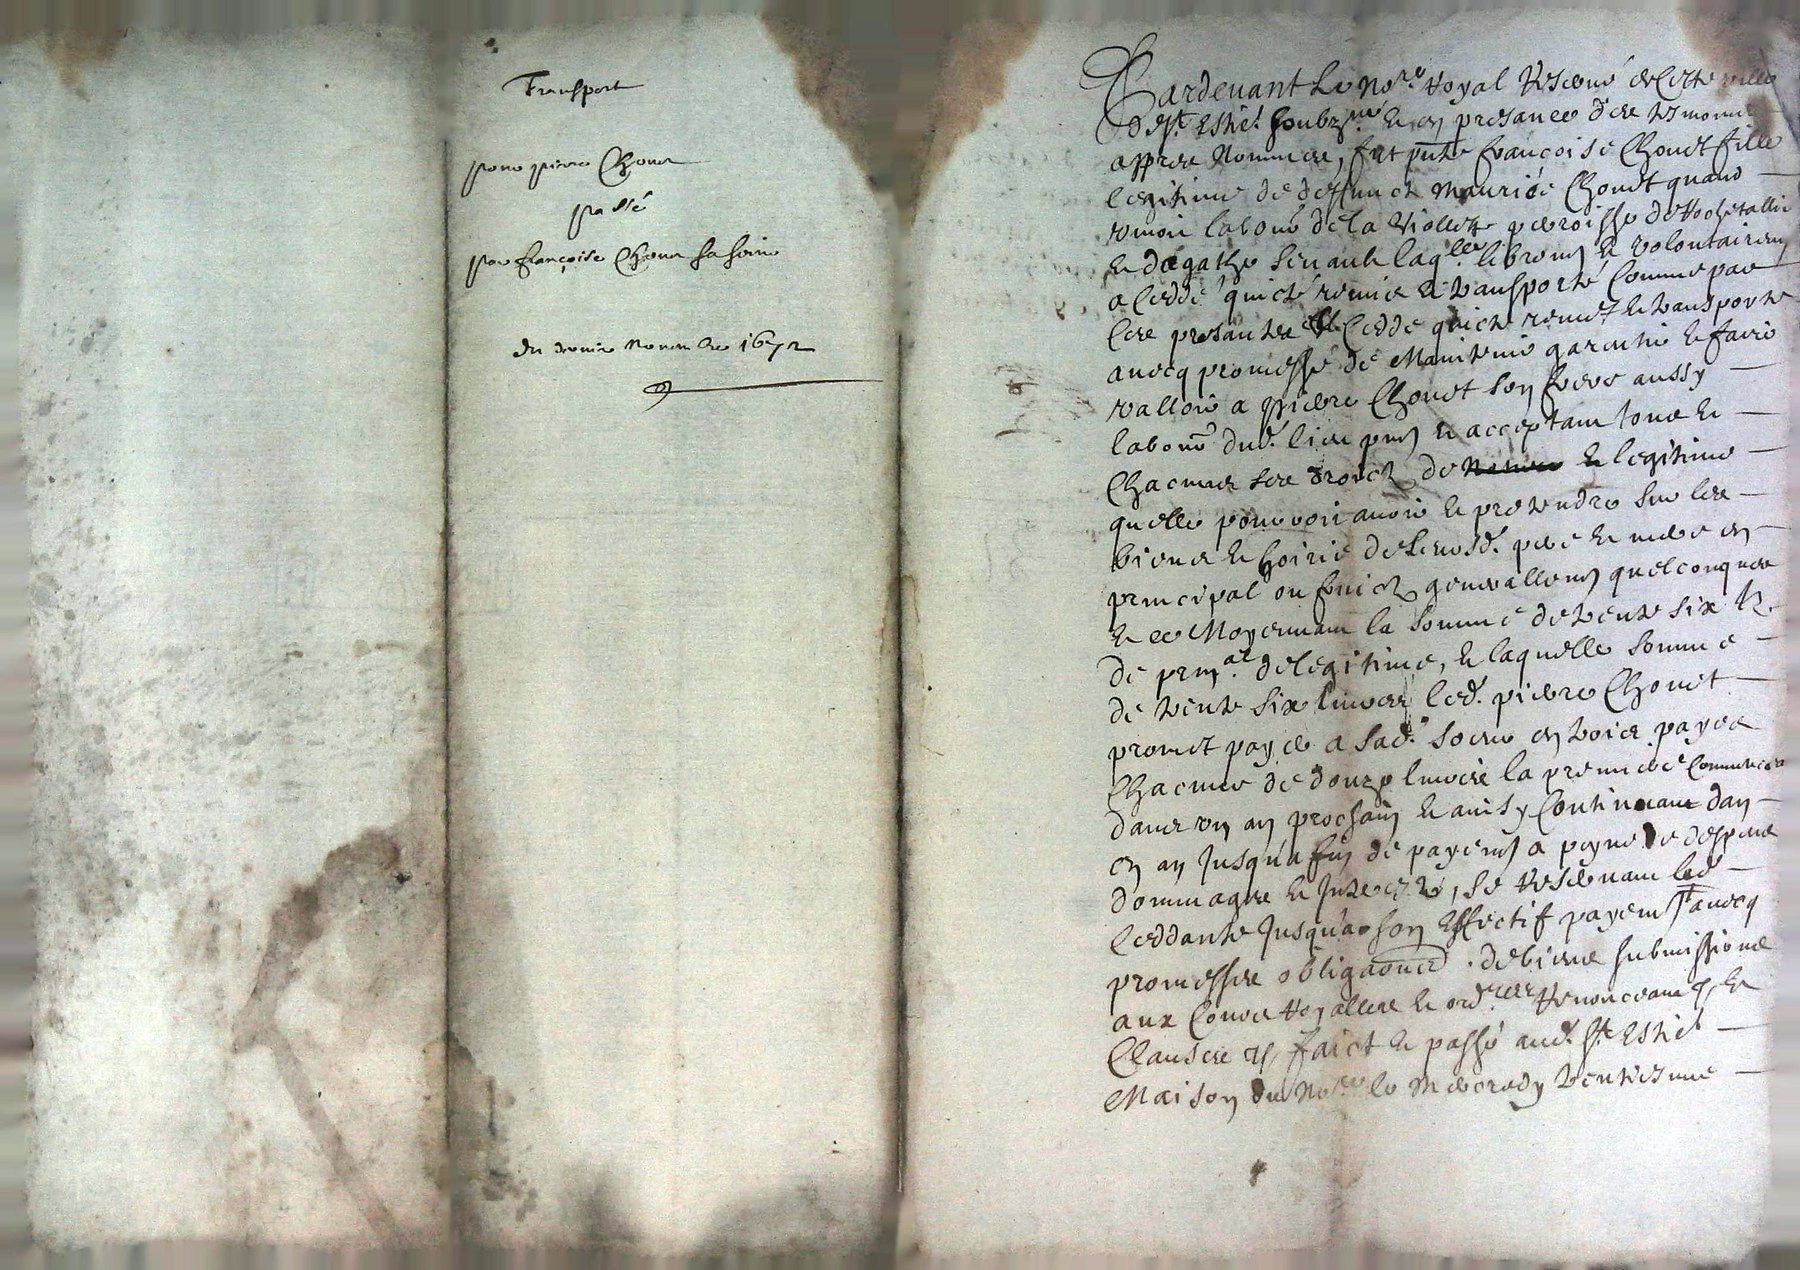 Transport
pour pierre Chouet
passé
par françoise Chouet sa soeur
du dernier Novembre 1672
Pardevant Le No.re Royal Reservé de Cette ville
de St. Estie. soubz.né & en presance des tesmoins
appres Nommes, fut pnte françoise Chouet fille
legitime de deffunct Mauricé Chouet quand
vivoit labour de la Violette parroisse de Rochetallié
& dagathe laq.lle librem & volontairem
a Ceddé quicté remis & transporté Comme par
Ces presantes Cedde quicte remet & transporte
avecq promesse de Maintenir garentir & faire
valloir a pierre Chouet son frere aussy
labour dud. lieu pnt & acceptant tous &
Chacuns ses droictz de & legitime
quelle pourroit avoir & pretendre sur les
biens & hoirie de sesusd. pere & mere en
principal ou fruictz generallem quelconques
& ce Moyennant la somme de trente six ll.
de prin.al de legitime, & laquelle somme
de trente six livres led. pierre Chouet
promet payer a sad. soeur en trois payes
Chacune de douze livres la premiere Commencera
dans un an prochain & ainsy Continuant dan
en an Jusqua fin de payem a peyne de despens
dommages & Interestz, se reservant lad.
Ceddante Jusquao son Effectif payem avecq
promesses obliga.ons . de biens submissions
aux Cours Royalles & ord.res Renonceant &
Clauses faict & passé aud. St. Estie.
Maison du No.re le Mecredy trentiesme